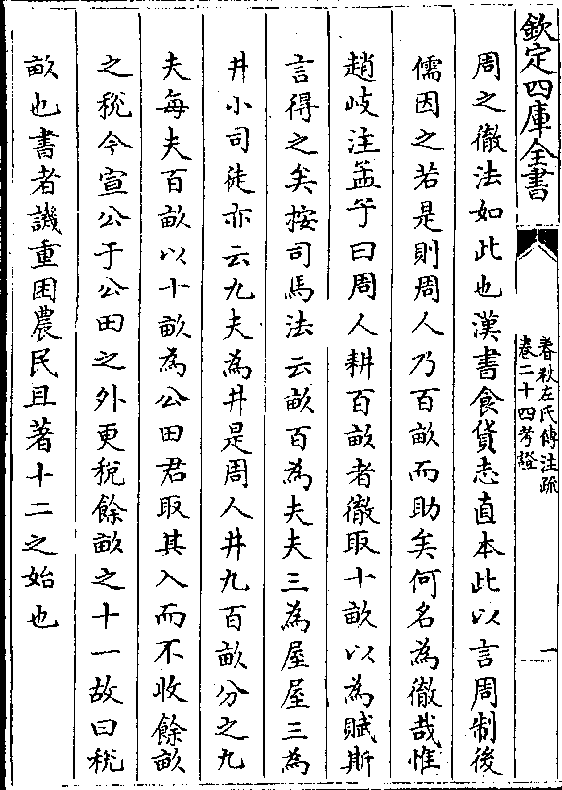 欽定四庫全書
春秋左氏傳注疏
卷二十四考證
一
周之徹法如此也漢書食貨志直本此以言周制後
儒因之若是則周人乃百畝而助矣何名為徹哉惟
趙岐注孟子曰周人耕百畝者徹取十畝以為賦斯
言得之矣按司馬法云畝百為夫夫三為屋屋三為
井小司徒亦云九夫為井是周人井九百畝分之九
夫每夫百畝以十畝為公田君取其入而不收餘畝
之稅今宣公于公田之外更稅餘畝之十一故曰稅
畝也書者譏重困農民且著十二之始也